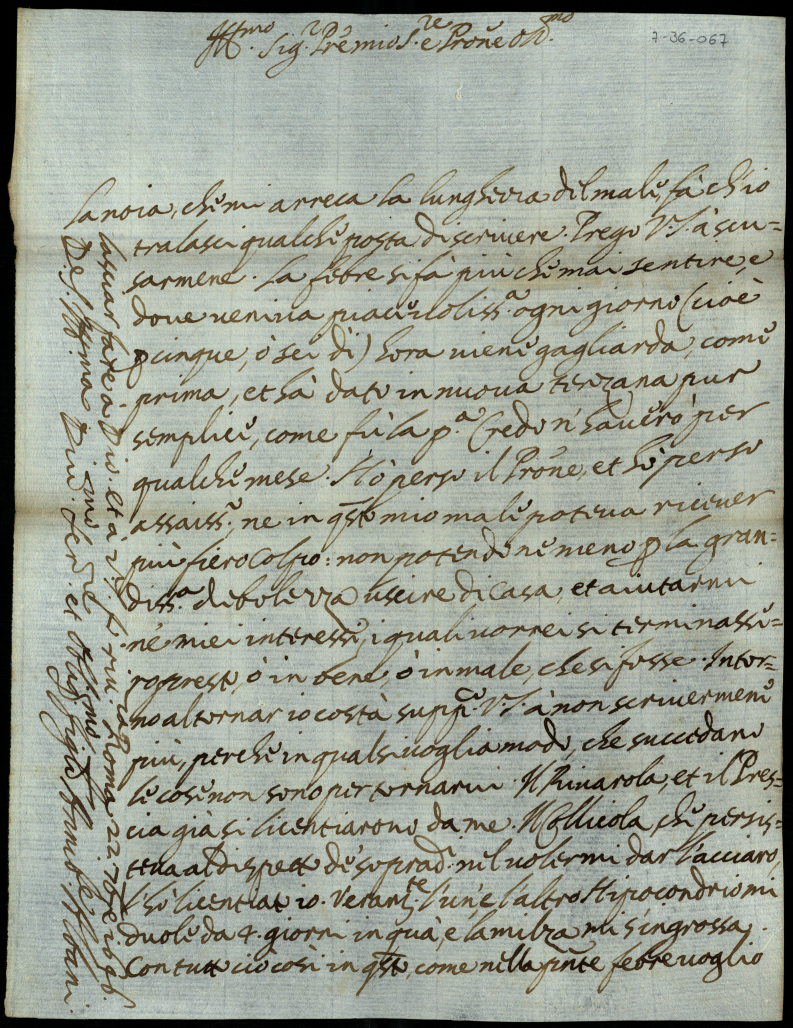 Ill.mo Sig.r Pr̃e mio S.re e Pron̄e Oss.mo
7-36-067
la noia, che mi arreca la lunghezza del male, fà ch'io
tralasci qualche posta di scrivere. Prego V.S. à scu=
sarmene. La febre si fà più che mai sentire, e
dove veniva piacevoliss.a ogni giorno (cioè
p cinque, ò sei dì) hora viene gagliarda, come
prima, et hà dato in nuova terzana pur
semplice, come fù la p.a Credo n'haverò per
qualche mese. Hò perso il Pron̄e, et hò perso
assaiss.o, ne in q̃sto mio male poteva ricever
più fiero Colpo: non potendo ne meno p la gran=
diss.a debolezza uscire di Casa, et aiutarmi
ne miei interessi, i quali vorrei si terminasse=
ro presto, ò in bene, ò in male, che si fosse. Intor=
no al tornar io costà supp.co V.S. à non scrivermene
più, perche in qualsivoglia modo, che succedano
le cose non sono per tornarvi. Il Rivarola, et il Pres=
cia già si licentiarono da me. Il Collicola, che persis=
teva al dispetto de soprad.i nel volermi dar l'acciaro,
l'hò licentiat'io. Veram.te l'un', e l'altro Hipocondrio mi
duole da 4. giorni in quà, e la milza mi s'ingrossa.
Con tutto ciò così in q̃sto, come nella p̃nte febre voglio
lasciar fare à Dio. et à V.S. f. riv.a Roma 22. 7bre 1696.
D. V.S. Ill.ma
Div.mo Ser.re et Obblig.mo figlio Annib.e Albani